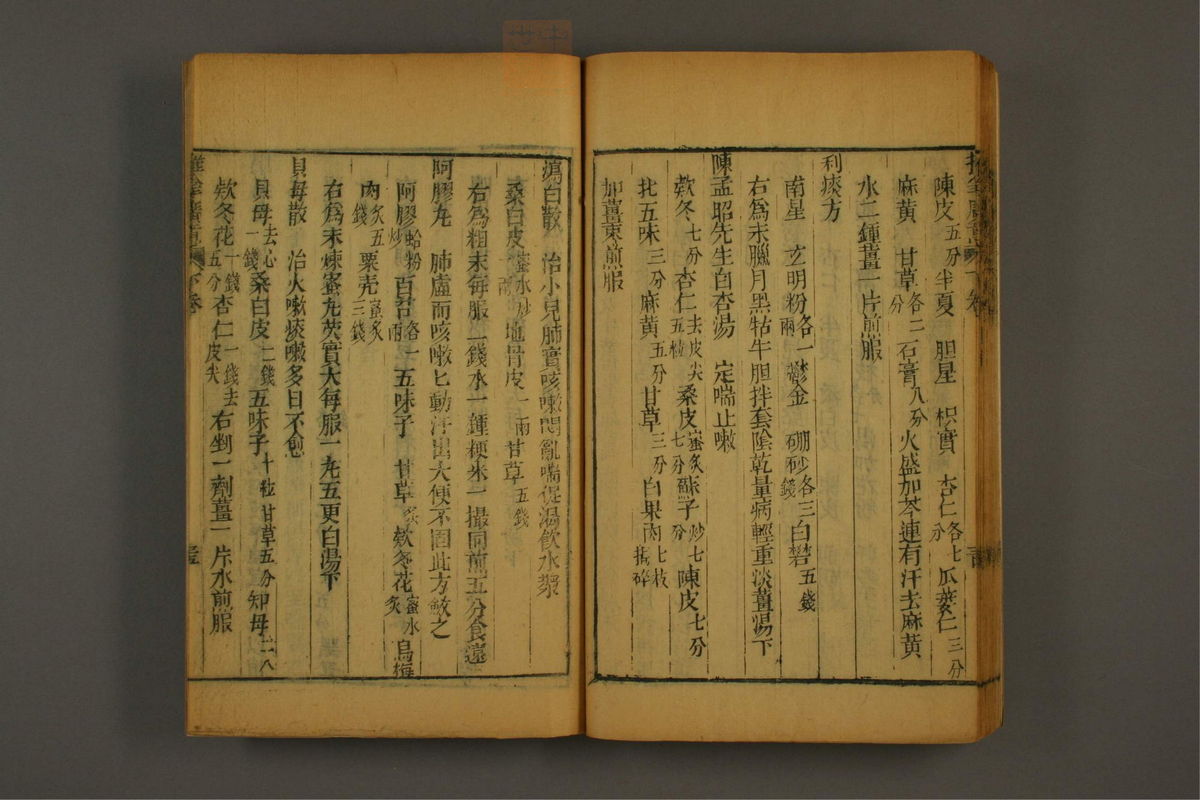 陳皮五分半夏　胆星　枳實　杏仁各七分瓜蔞仁三分
麻黄　甘草各二分石膏八分火盛加芩連有汗去麻黄
水二鍾薑一片煎服
利痰方
南星　玄明粉各一兩鬱金　硼砂各三錢白礬五錢
右為末臘月黑牯牛胆拌套陰乾量病輕重淡薑湯下
陳孟昭先生白杏湯　定喘止嗽
欵冬七分杏仁去皮尖五粒桑皮蜜炙七分蘇子炒七分陳皮七分
北五味三分麻黄五分甘草三分白果肉七枚搗碎
加薑棗煎服
瀉白散　治小兒肺實咳嗽悶亂喘促渴飲水漿
桑白皮蜜水炒一兩地骨皮一兩甘草五錢
右為粗末每服二錢水一鍾粳米一撮同煎五分食遠
阿膠丸　肺虛而咳嗽匕動汗出大便不固此方斂之
阿膠蛤粉炒百苕各一兩五味子　甘草炙欵冬花蜜水炙烏梅
肉炙五錢粟壳蜜炙三錢
右為末煉蜜丸芡實大每服一丸五更白湯下
貝母散　治火嗽痰嗽多日不愈
貝母去心一錢桑白皮二錢五味子十粒甘草五分知母二分
欵冬花一錢五分杏仁一錢去皮尖右剉一劑薑二片水煎服